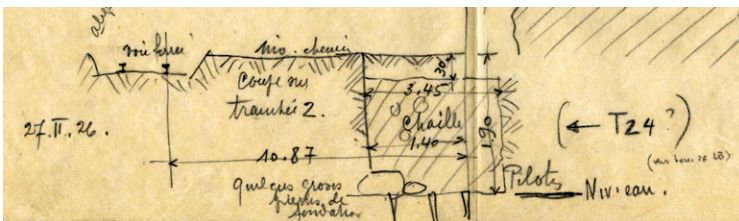 voie ferrée
niv. chemin
Coupe sur
tranchée 2.
27.II.26.
30
3.45
Chaille
1.40
190
10.87
(← T24?)
quelques grosses
pierres de
fondation
Pilotis
Niveau.